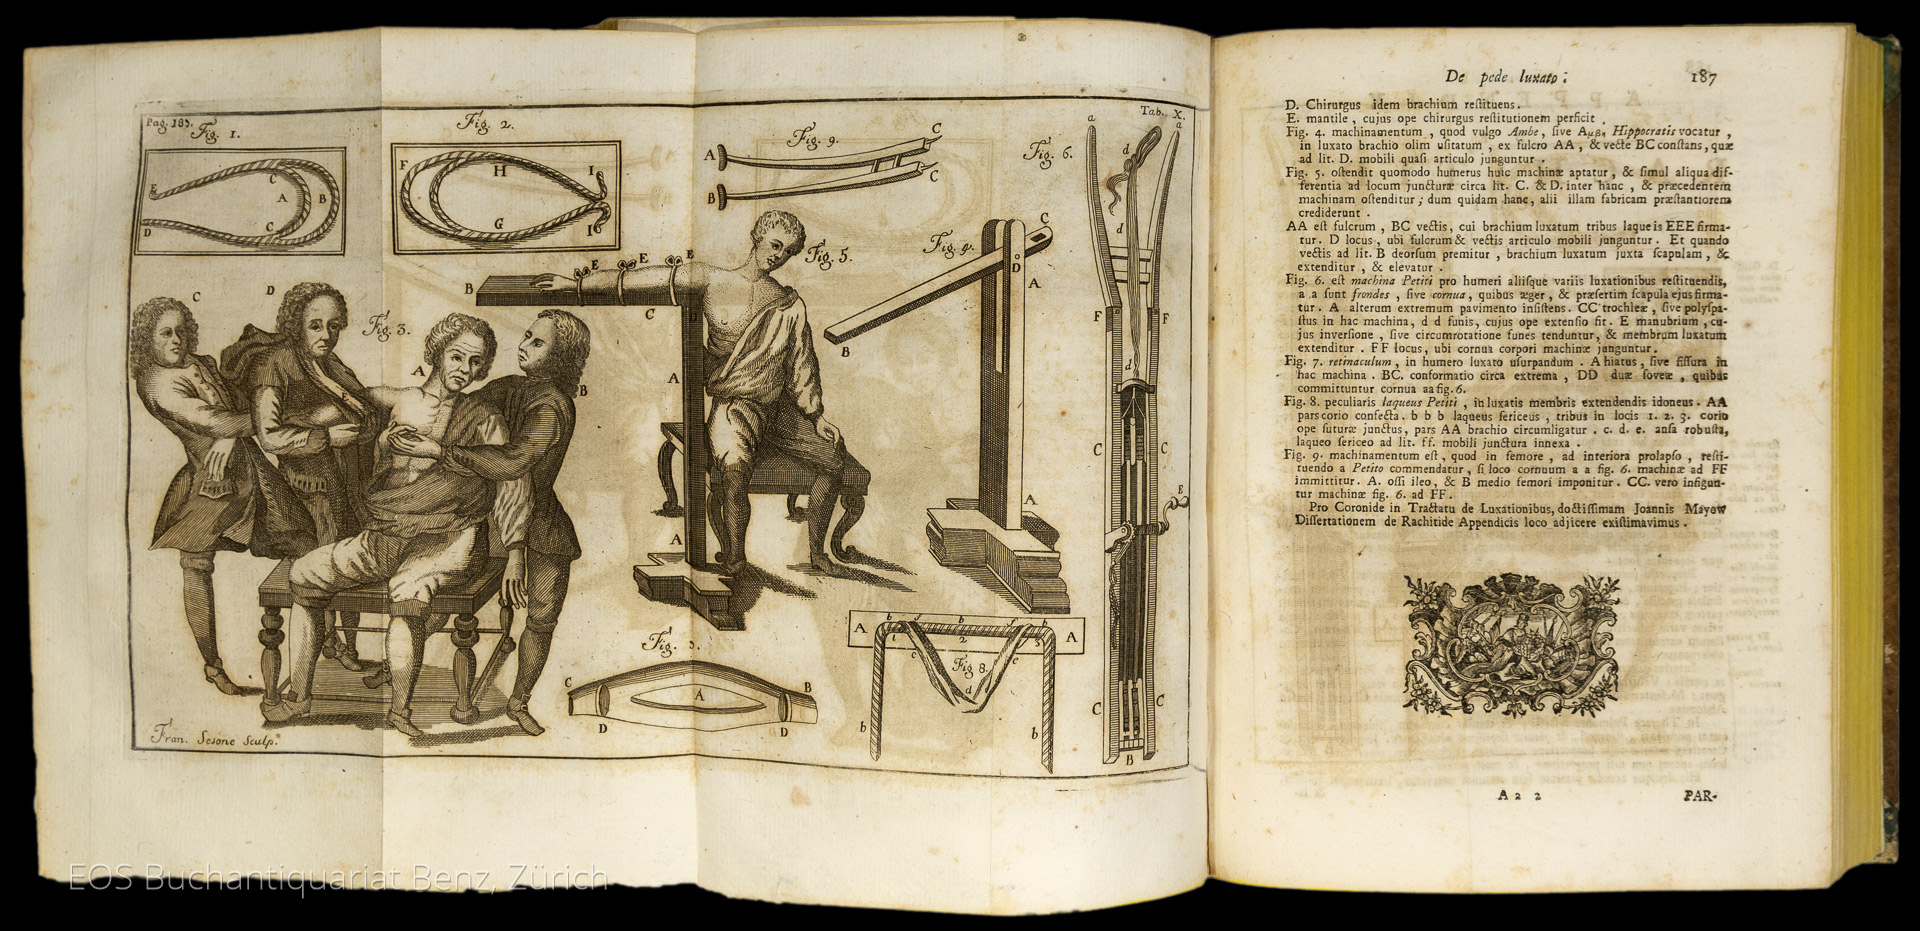 Pag. 183.
Tab. X.
Fig. 1.
E
D
C
A
B
C
Fig. 2.
F
H
G
I
I
Fig. 9.
A
B
C
C
Fig. 6.
a
a
d
d
d
d
F
F
C
C
E
C
C
B
Fig. 3.
C
D
A
E
B
Fig. 5.
B
E
E
E
C
D
A
A
Fig. 4.
C
D
A
B
A
Fig.
C
B
A
D
D
Fig 8.
A
A
b
b
b
1
2
3
f
f
c
e
d
b
b
Fran. Sesone Sculp.
De pede luxato.
187
D. Chirurgus idem brachium reſtituens.
E. mantile, cujus ope chirurgus reſtitutionem perficit.
Fig. 4. machinamentum, quod vulgo Ambe, ſive Αμβη Hippocratis vocatur,
in luxato brachio olim uſitatum, ex fulcro AA, & vecte BC conſtans, quæ
ad lit. D. mobili quaſi articulo junguntur.
Fig. 5. oſtendit quomodo humerus huic machinæ aptatur, & ſimul aliqua dif-
ferentia ad locum juncturæ circa lit. C. & D. inter hanc, & præcedentem
machinam oſtenditur; dum quidam hanc, alii illam fabricam præſtantiorem
crediderunt.
AA eſt fulcrum, BC vectis, cui brachium luxatum tribus laqueis EEE firma-
tur. D locus, ubi fulcrum & vectis articulo mobili junguntur. Et quando
vectis ad lit. B deorſum premitur, brachium luxatum juxta ſcapulam, &
extenditur, & elevatur.
Fig. 6. eſt machina Petiti pro humeri aliiſque variis luxationibus reſtituendis,
a a ſunt frondes, ſive cornua, quibus æger, & præſertim ſcapula ejus firma-
tur. A alterum extremum pavimento inſiſtens. CC trochleæ, ſive polyſpa-
ſtus in hac machina, d d funis, cujus ope extenſio fit. E manubrium, cu-
jus inverſione, ſive circumrotatione funes tenduntur, & membrum luxatum
extenditur. FF locus, ubi cornua corpori machinæ junguntur.
Fig. 7. retinaculum, in humero luxato uſurpandum. A hiatus, ſive fiſſura in
hac machina. BC. conformatio circa extrema, DD duæ foveæ, quibus
committuntur cornua aa fig. 6.
Fig. 8. peculiaris laqueus Petiti, in luxatis membris extendendis idoneus. AA
pars corio confecta. b b b laqueus ſericeus, tribus in locis 1. 2. 3. corio
ope ſuturæ junctus, pars AA brachio circumligatur. c. d. e. anſa robuſta,
laqueo ſericeo ad lit. ff. mobili junctura innexa.
Fig. 9. machinamentum eſt, quod in femore, ad interiora prolapſo, reſti-
tuendo a Petito commendatur, ſi loco cornuum a a fig. 6. machinæ ad FF
immittitur. A. oſſi ileo, & B medio femori imponitur. CC. vero infigun-
tur machinæ fig. 6. ad FF.
Pro Coronide in Tractatu de Luxationibus, doctiſſimam Joannis Mayow
Diſſertationem de Rachitide Appendicis loco adjicere exiſtimavimus.
A a 2
PAR-
EOS Buchantiquariat Benz, Zürich